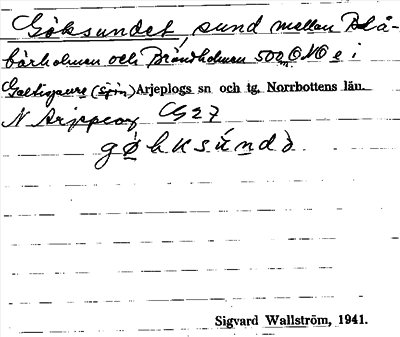 Göksundet, sund mellan Blå-
bärholmen och Brändholmen 500 m ONO e i
Galtisjaure (sjön) Arjeplogs sn och tg. Norrbottens län.
N Arjeplog C 27
Sigvard Wallström, 1941.